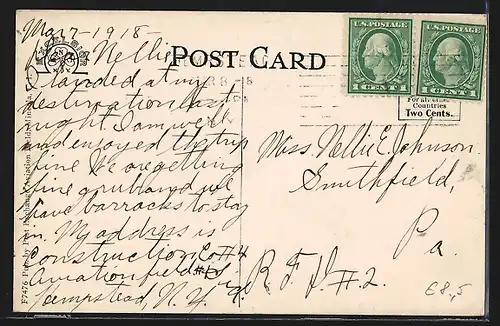 Mar 7 - 1918 -
Nellie
POST CARD
I landed at my
destination last
night. I am well
and enjoyed the trip
fine. We are getting
fine grub and we
have barracks to stay
in. My address is
Construction Co #4
Aviation field #
Hempstead, N.Y.
U.S. POSTAGE
1 CENT 1
U.S. POSTAGE
1 CENT 1
Countries
Two Cents.
Miss. Nellie E. Johnson.
Smithfield,
Pa.
R. F. D. #2.
€8,5